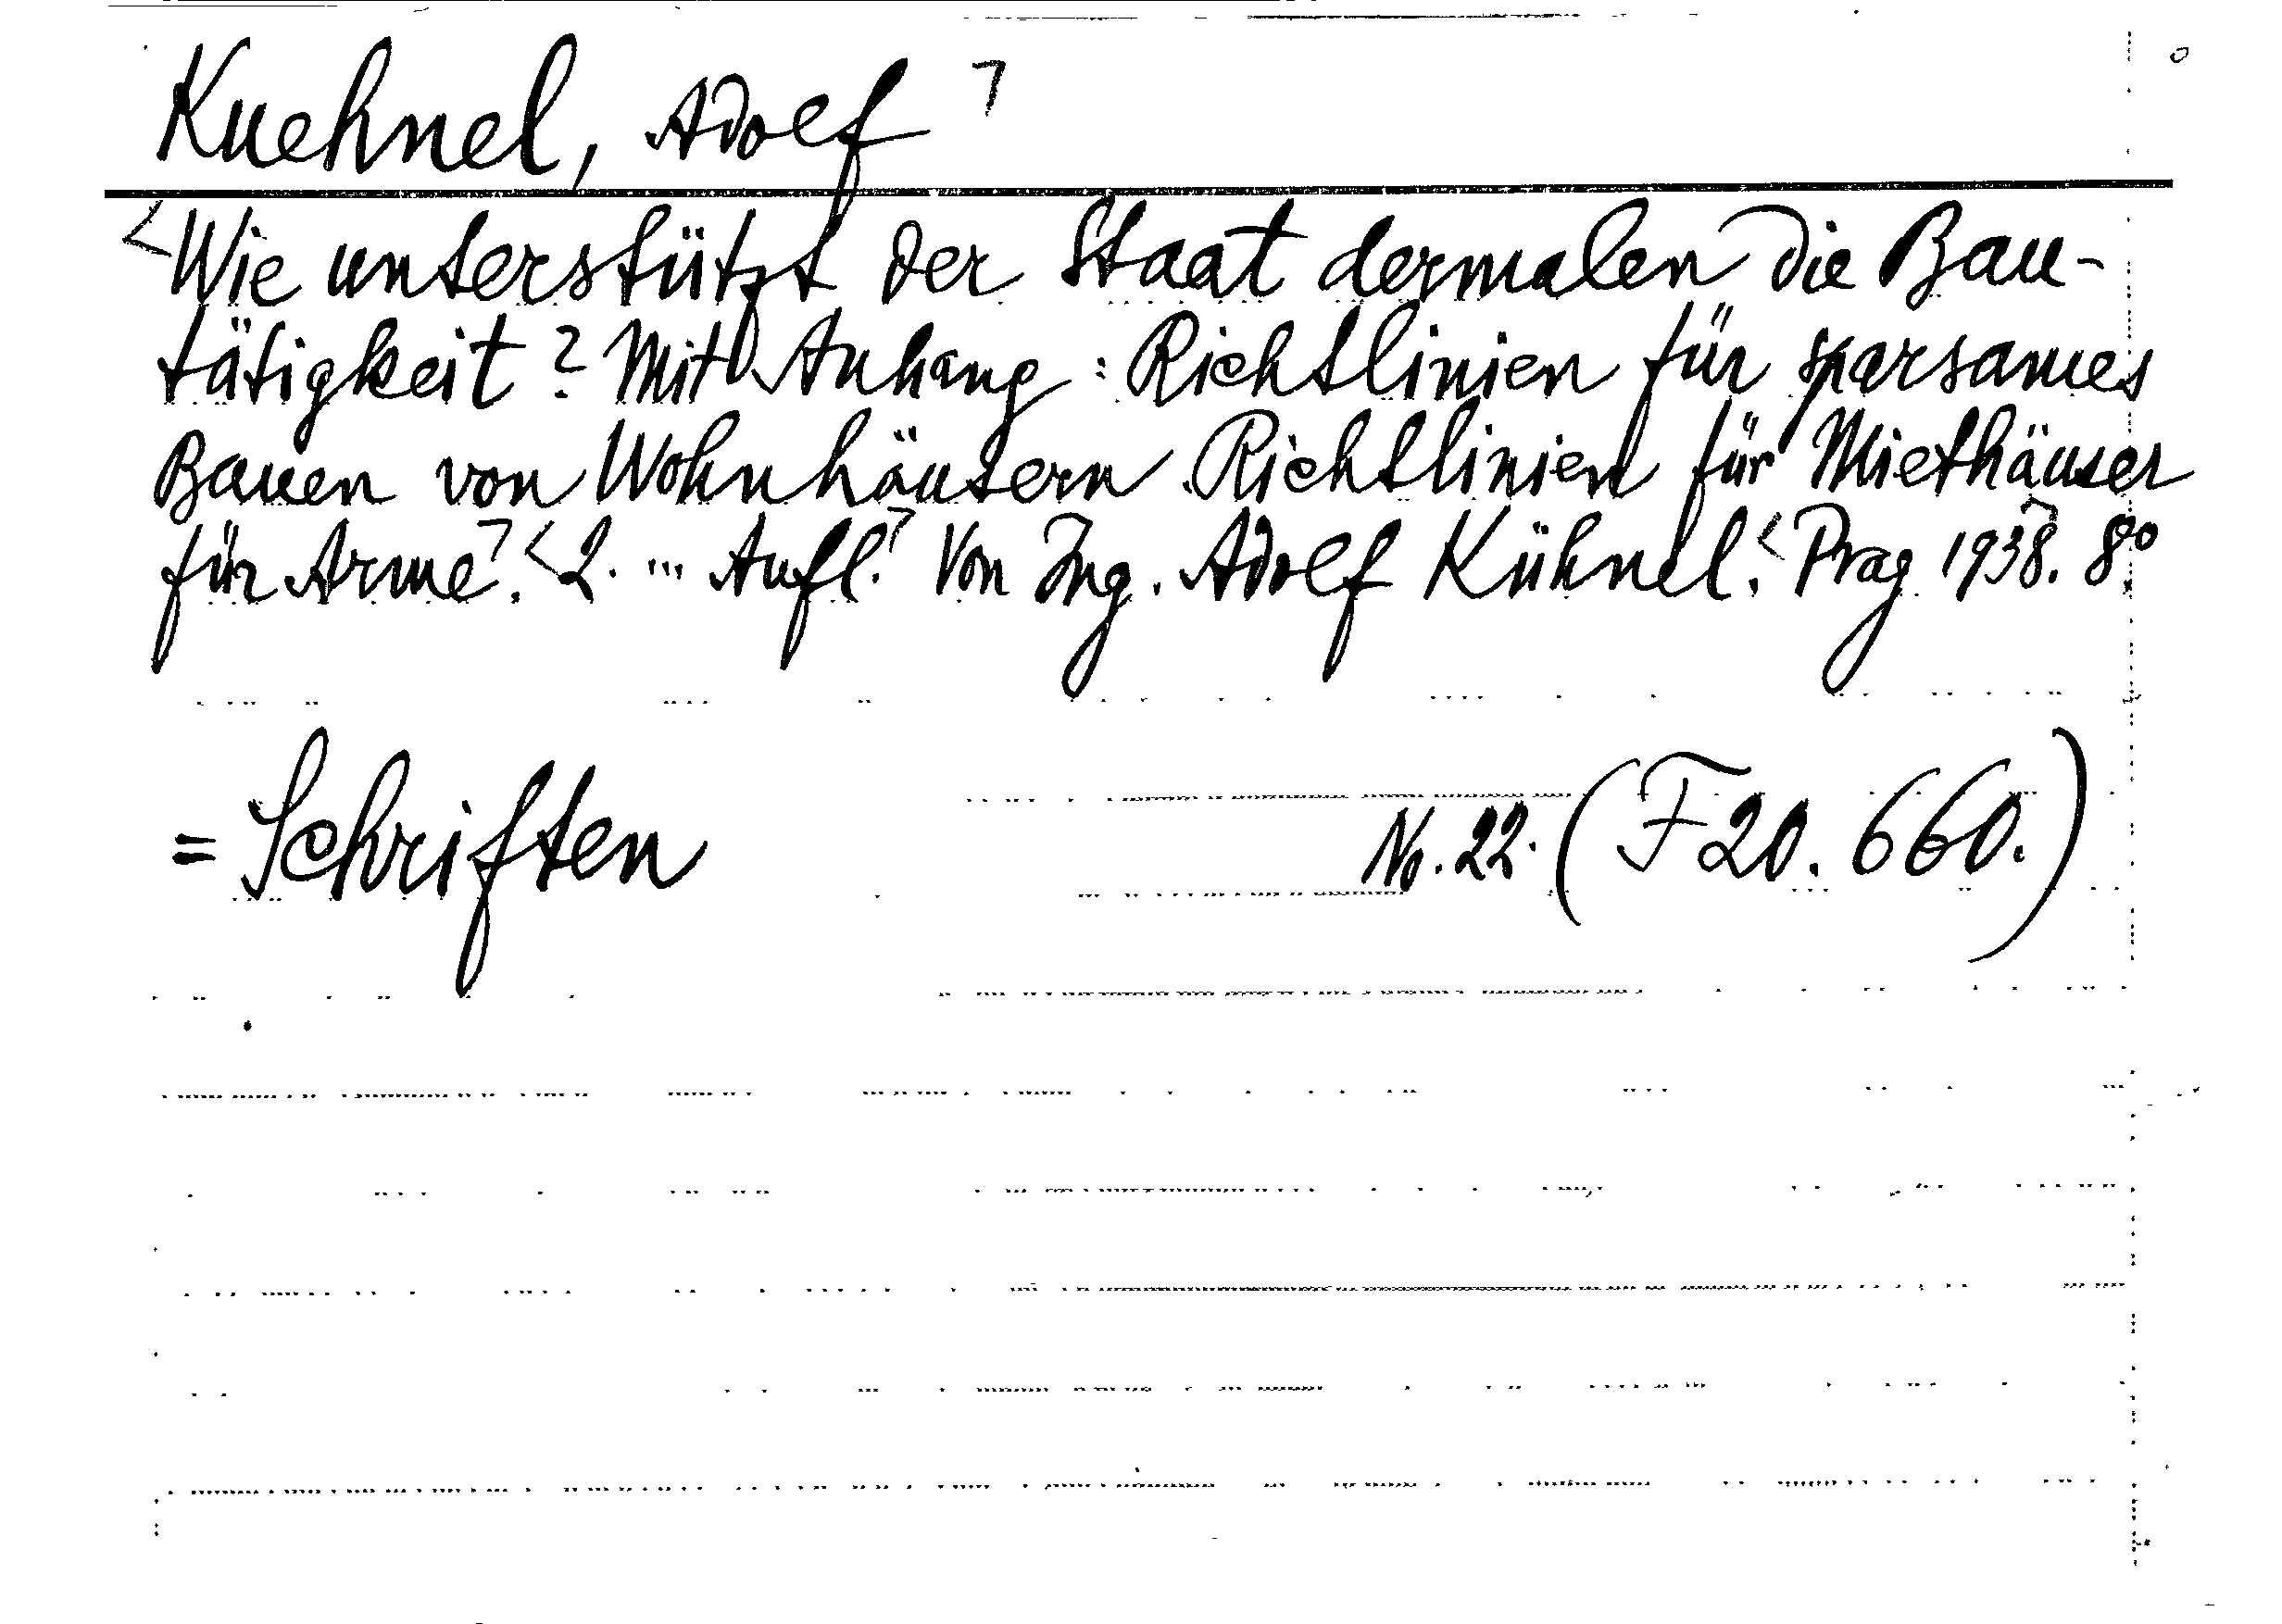 Kuehnel, Adolf ⌝
<Wie unterstützt der Staat dermalen die Bau-
tätigkeit? Mit Anhang: Richtlinien für sparsames
Bauen von Wohnhäusern. Richtlinien für Miethäuser
für Arme⌝. <2. ... Aufl.⌝ Von Ing. Adolf Kühnel. <Prag 1938⌝. 8°.
= Schriften No. 22. (F 20.660.)